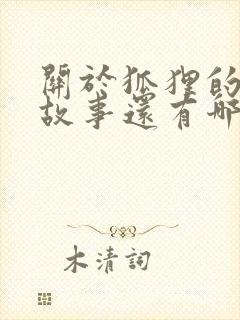 關於狐狸的
故事還有哪
木清詞